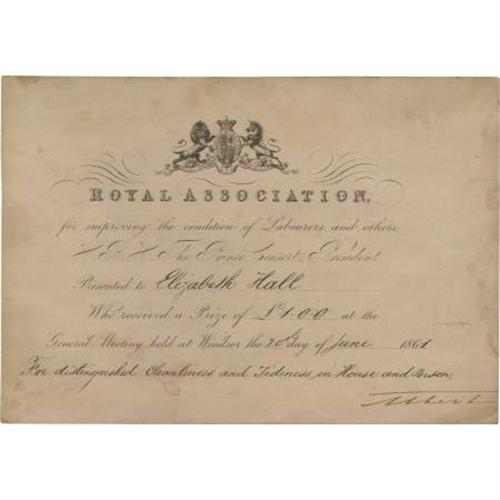 ROYAL ASSOCIATION,
for improving the condition of Labourers, and others,
H. R. H. The Prince Consort, President.
Presented to Elizabeth Hall
Who received a Prize of £1.0.0 at the
General Meeting held at Windsor the 20 day of June 1861
For distinguished Cleanliness and Tidiness, in House and Person
Albert